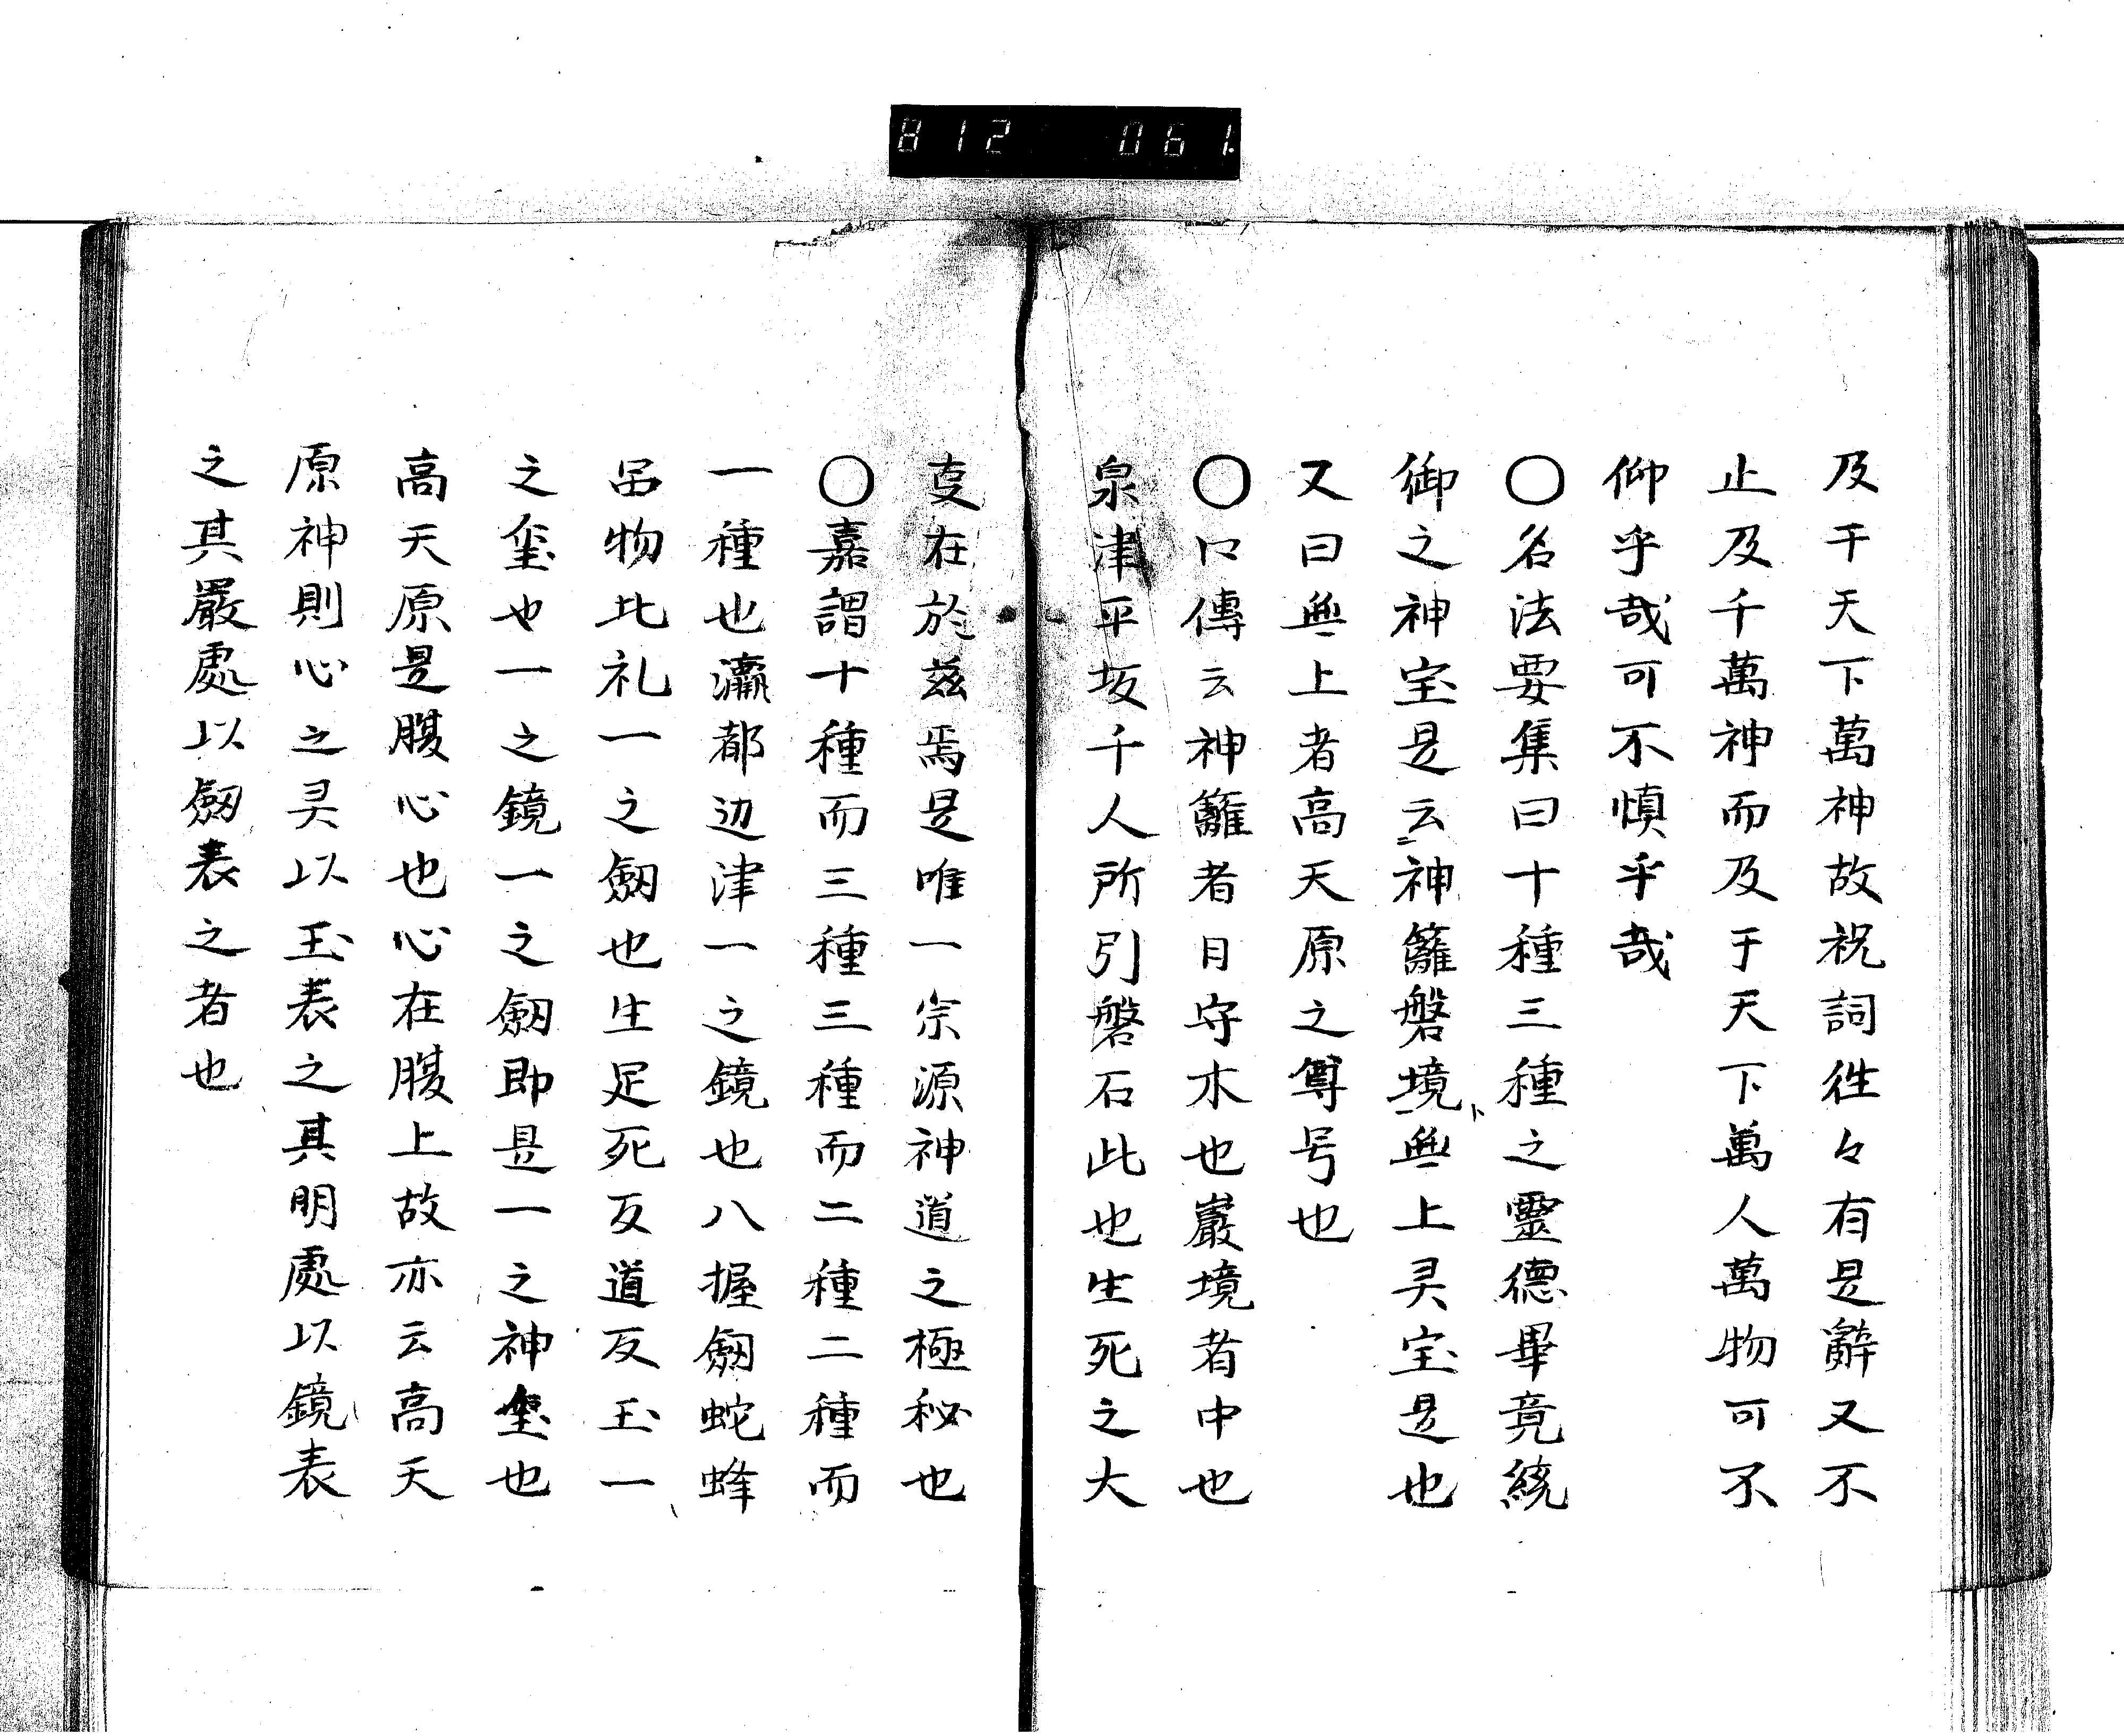 812 061
及于天下萬神故祝詞往々有是辭又不
止及千萬神而及于天下萬人萬物可不
仰乎哉可不慎乎哉
〇名法要集曰十種三種之靈德畢竟統
御之神宝是云神籬磐境無上灵宝是也
又曰無上者高天原之尊号也
〇口傳云神籬者日守木也巖境者中也
泉津平坂千人所引磐石此也生死之大
支在於玆焉是唯一宗源神道之極秘也
〇嘉謂十種而三種三種而二種二種而
一種也瀛都辺津一之鏡也八握劔蛇蜂
品物比礼一之劔也生足死反道反玉一
之璽也一之鏡一之劔即是一之神璽也
高天原是腹心也心在腹上故亦云高天
原神則心之灵以玉表之其明處以鏡表
之其嚴處以劔表之者也